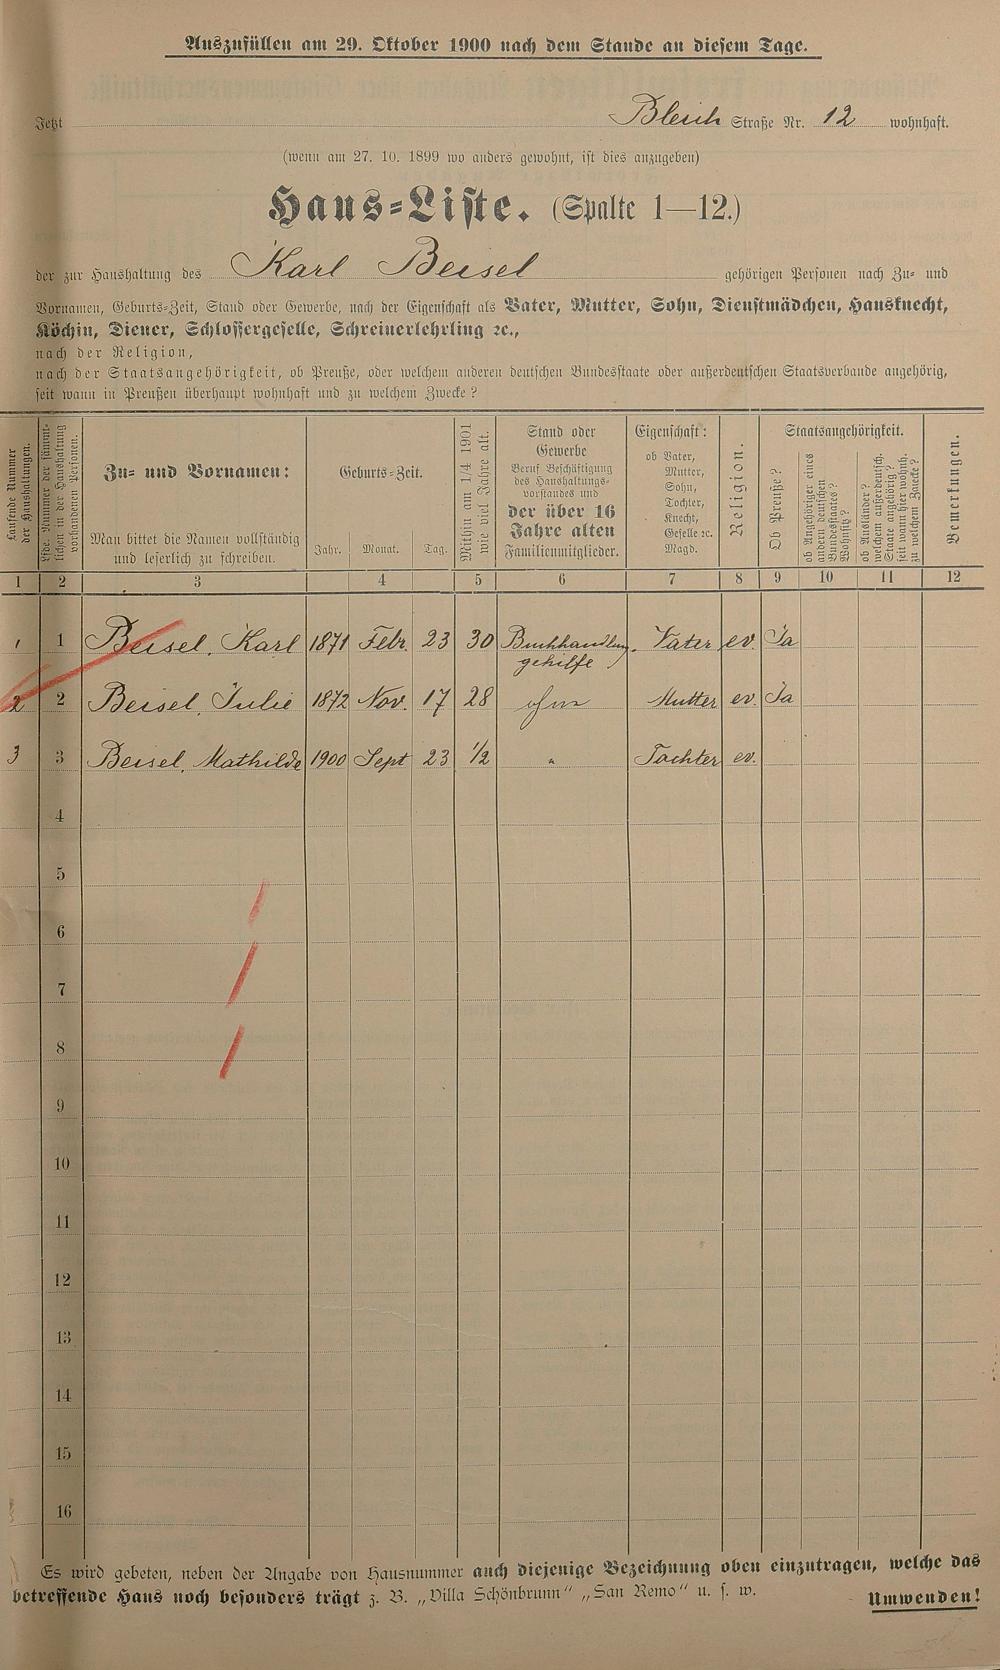 Auszufüllen am 29. Oktober 1900 nach dem Stande an diesem Tage.
Jetzt Bleich Straße Nr. 12 wohnhaft.
(wenn am 27. 10. 1899 wo anders gewohnt, ist dies anzugeben)
Haus-Liste. (Spalte 1—12.)
der zur Haushaltung des Karl Beisel gehörigen Personen nach Zu- und
Vornamen, Geburts-Zeit, Stand oder Gewerbe, nach der Eigenschaft als Vater, Mutter, Sohn, Dienstmädchen, Hausknecht,
Köchin, Diener, Schlossergeselle, Schreinerlehrling ꝛc.,
nach der Religion,
nach der Staatsangehörigkeit, ob Preuße, oder welchem anderen deutschen Bundesstaate oder außerdeutschen Staatsverbande angehörig,
seit wann in Preußen überhaupt wohnhaft und zu welchem Zwecke?
Laufende Nummer der Haushaltungen.
Lfde. Nummer der sämmtlichen in der Haushaltung vorhandenen Personen.
Zu- und Vornamen:
Man bittet die Namen vollständig
und leserlich zu schreiben.
Geburts-Zeit.
Jahr. Monat. Tag.
Mithin am 1/4 1901
wie viel Jahre alt.
Stand oder
Gewerbe
Beruf Beschäftigung
des Haushaltungs-
vorstandes und
der über 16
Jahre alten
Familienmitglieder.
Eigenschaft:
ob Vater,
Mutter,
Sohn,
Tochter,
Knecht,
Geselle ꝛc.
Magd.
Religion.
Staatsangehörigkeit.
Ob Preuße?
ob Angehöriger eines
andern deutschen
Bundesstaates?
Wohnsitz?
ob Ausländer?
welchem außerdeutsch.
Staate angehörig?
seit wann hier wohnh.
zu welchem Zwecke?
Bemerkungen.
1 2 3 4 5 6 7 8 9 10 11 12
1 1 Beisel, Karl 1871 Febr. 23 30 Buchhandlun. Vater ev. Ja
gehilfe
2 2 Beisel, Julie 1872 Nov. 17 28 ohne Mutter ev. Ja
3 3 Beisel, Mathilde 1900 Sept 23 1/2 " Tochter ev.
4
5
6
7
8
9
10
11
12
13
14
15
16
Es wird gebeten, neben der Angabe von Hausnummer auch diejenige Bezeichnung oben einzutragen, welche das
betreffende Haus noch besonders trägt z. B. „Villa Schönbrunn" „San Remo" u. s. w.
Umwenden!